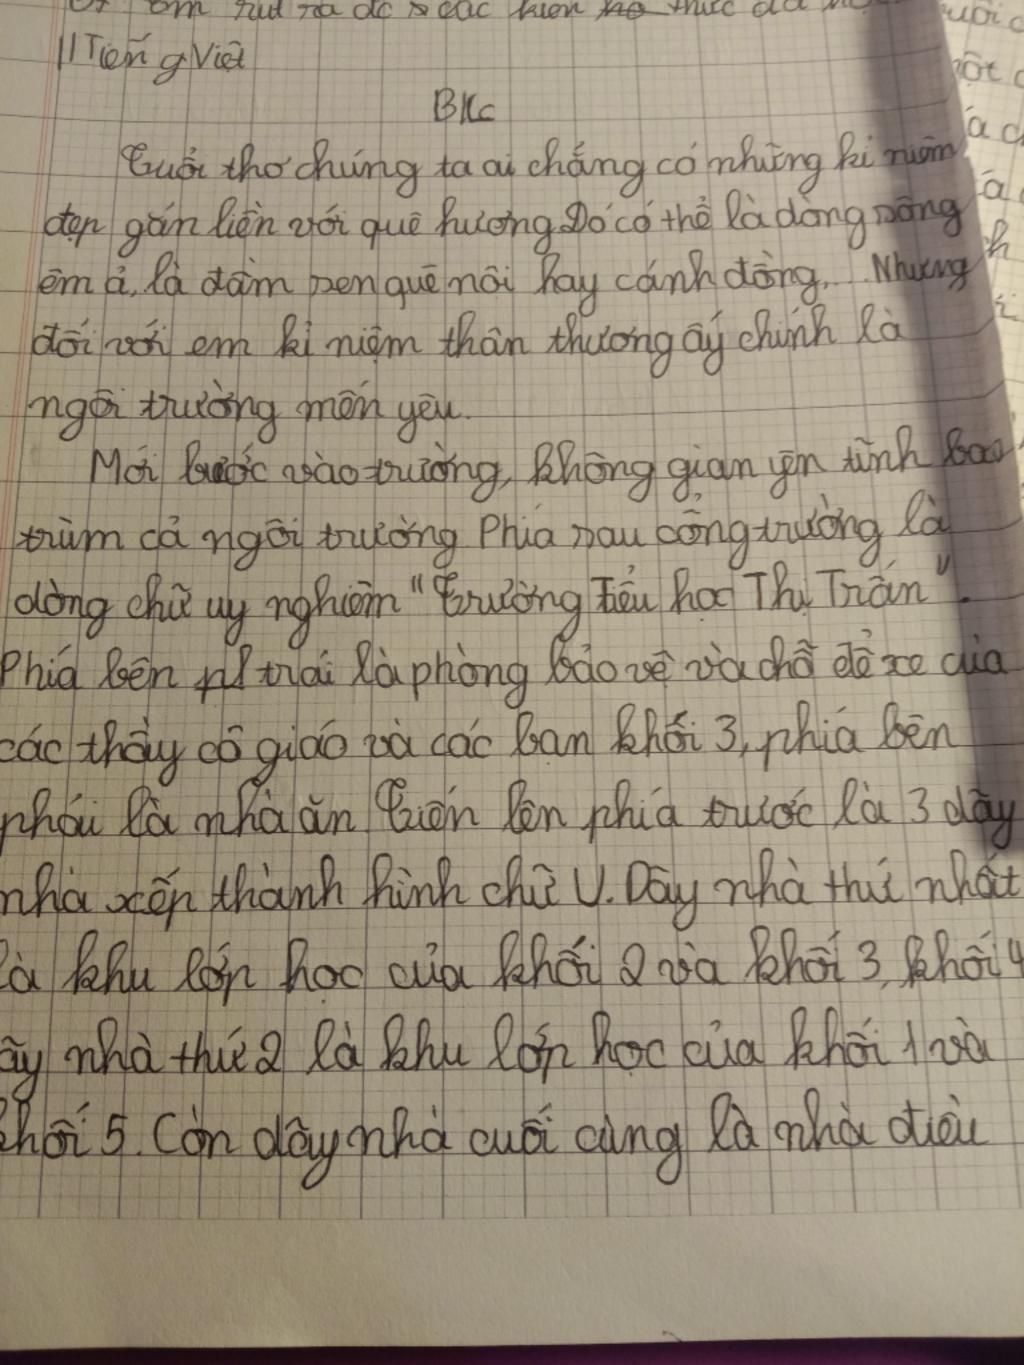 rút ra đc các kiến thức đã
II Tiếng Việt
Tuổi thơ chúng ta ai chẳng có những kỉ niệm
đẹp gắn liền với quê hương Đó có thể là dòng sông
êm ả, là đầm sen quê nôi hay cánh đồng,... Nhưng
đối với em kỉ niệm thân thương ấy chính là
ngôi trường mến yêu.
Mới bước vào trường, không gian yên tĩnh bao
trùm cả ngôi trường Phía sau cổng trường là
dòng chữ uy nghiêm "Trường Tiểu học Thị Trấn".
Phía bên trái là phòng bảo vệ và chỗ để xe của
các thầy cô giáo và các bạn khối 3, phía bên
phải là nhà ăn Tiến lên phía trước là 3 dãy
nhà xếp thành hình chữ U. Dãy nhà thứ nhất
là khu lớp học của khối 2 và khối 3, khối 4
ãy nhà thứ 2 là khu lớp học của khối 1 và
khối 5. Còn dãy nhà cuối cùng là nhà điều